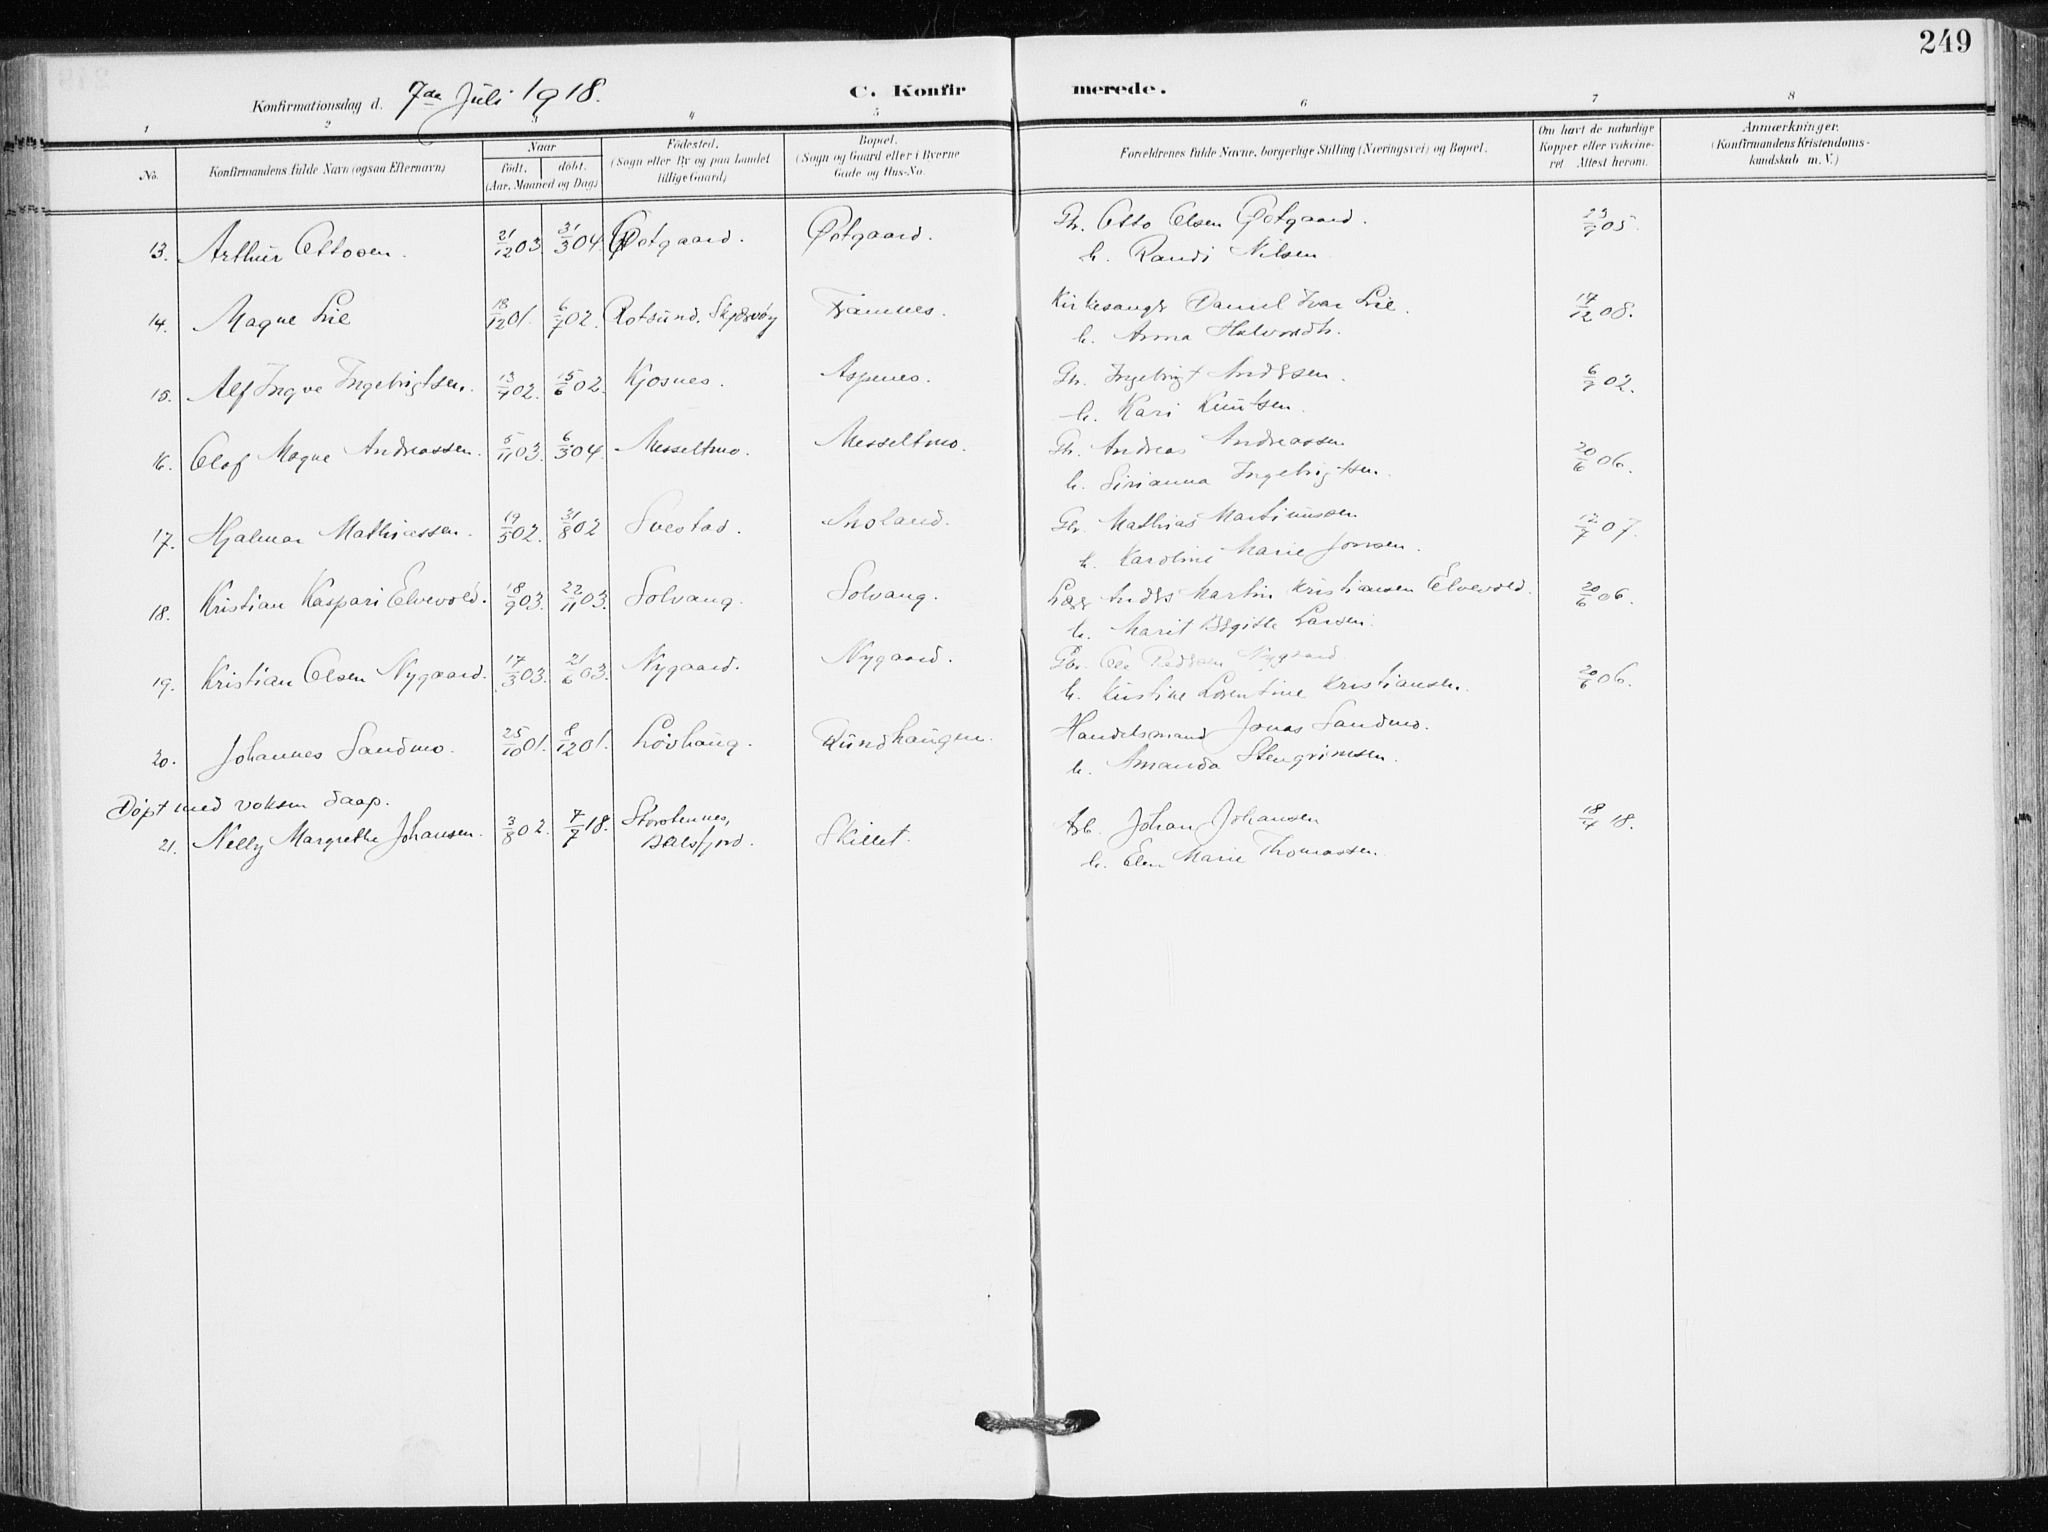 249
Konfirmationsdag d. 7de Juli 1918.
C. Konfirmerede.
1 2 3 4 5 6 7 8
No.
Konfirmandens fulde Navn (ogsaa Efternavn)
Naar
født. døbt.
(Aar, Maaned og Dag)
Fødested.
(Sogn eller By og paa Landet
tillige Gaard)
Bopæl.
(Sogn og Gaard eller i Byerne
Gade og Hus-No.
Forældrenes fulde Navne, borgerlige Stilling (Næringsvei) og Bopæl.
Om havt de naturlige
Kopper eller vakcine-
ret Attest herom.
Anmærkninger.
(Konfirmandens Kristendoms-
kundskab m. V.)
13. Arthur Ottosen. 21/12 03. 31/3 04. Østgaard. Østgaard. Gb. Otto Olsen Østgaard. 23/9 05.
h. Randi Nilsen
14. Magne Lie 18/12 01. 6/7 02. Rotsund, Skjærvøy Framnes. Kirkesanger Daniel Ivar Lie. 17/12 08.
h. Anna Halvorsdtr.
15. Alf Ingve Ingebrigtsen. 13/4 02. 15/6 02. Kjosnes. Aspenes. Gb. Ingebrigt Andersen. 6/9 02.
h. Kari Knutsen.
16. Olaf Magne Andreassen. 5/11 03. 6/3 04. Messeltmo. Messeltmo. Gb. Andreas Andreassen 20/6 06.
h. Sirianna Ingebrigtsen.
17. Hjalmar Mathiassen. 19/5 02. 31/8 02 Svestad. Moland. Gbr. Mathias Martinussen 12/7 07.
h. Karoline Marie Jonsen.
18. Kristian Kaspari Elvevold. 18/9 03. 22/11 03. Solvang. Solvang. Lærer Anders Martin Kristiansen Elvevold. 20/6 06.
h. Marit Birgitte Larsen.
19. Kristian Olsen Nygaard. 17/3 03. 21/6 03. Nygaard. Nygaard. Gbr. Ole Pedersen Nygaard 20/6 06.
h. Kristine Lorentine Kristiansen.
20. Johannes Sandmo. 25/10 01. 8/12 01. Løvhaug. Rundhaugen. Handelsmand Jonas Sandmo.
h. Amanda Stengrimsen.
Døpt med voksen daap.
21. Nelly Margrethe Johansen. 3/8 02. 7/7 18. Storstennes, Skillet. Arb. Johan Johansen 18/4 18.
Balsfjord. h. Elen Marie Thomassen.